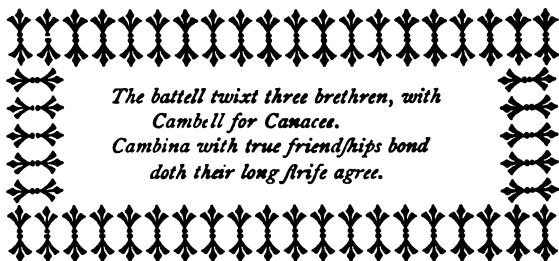 The battell twixt three brethren, with
Cambell for Canacee.
Cambina with true friendſhips bond
doth their long ſtrife agree.